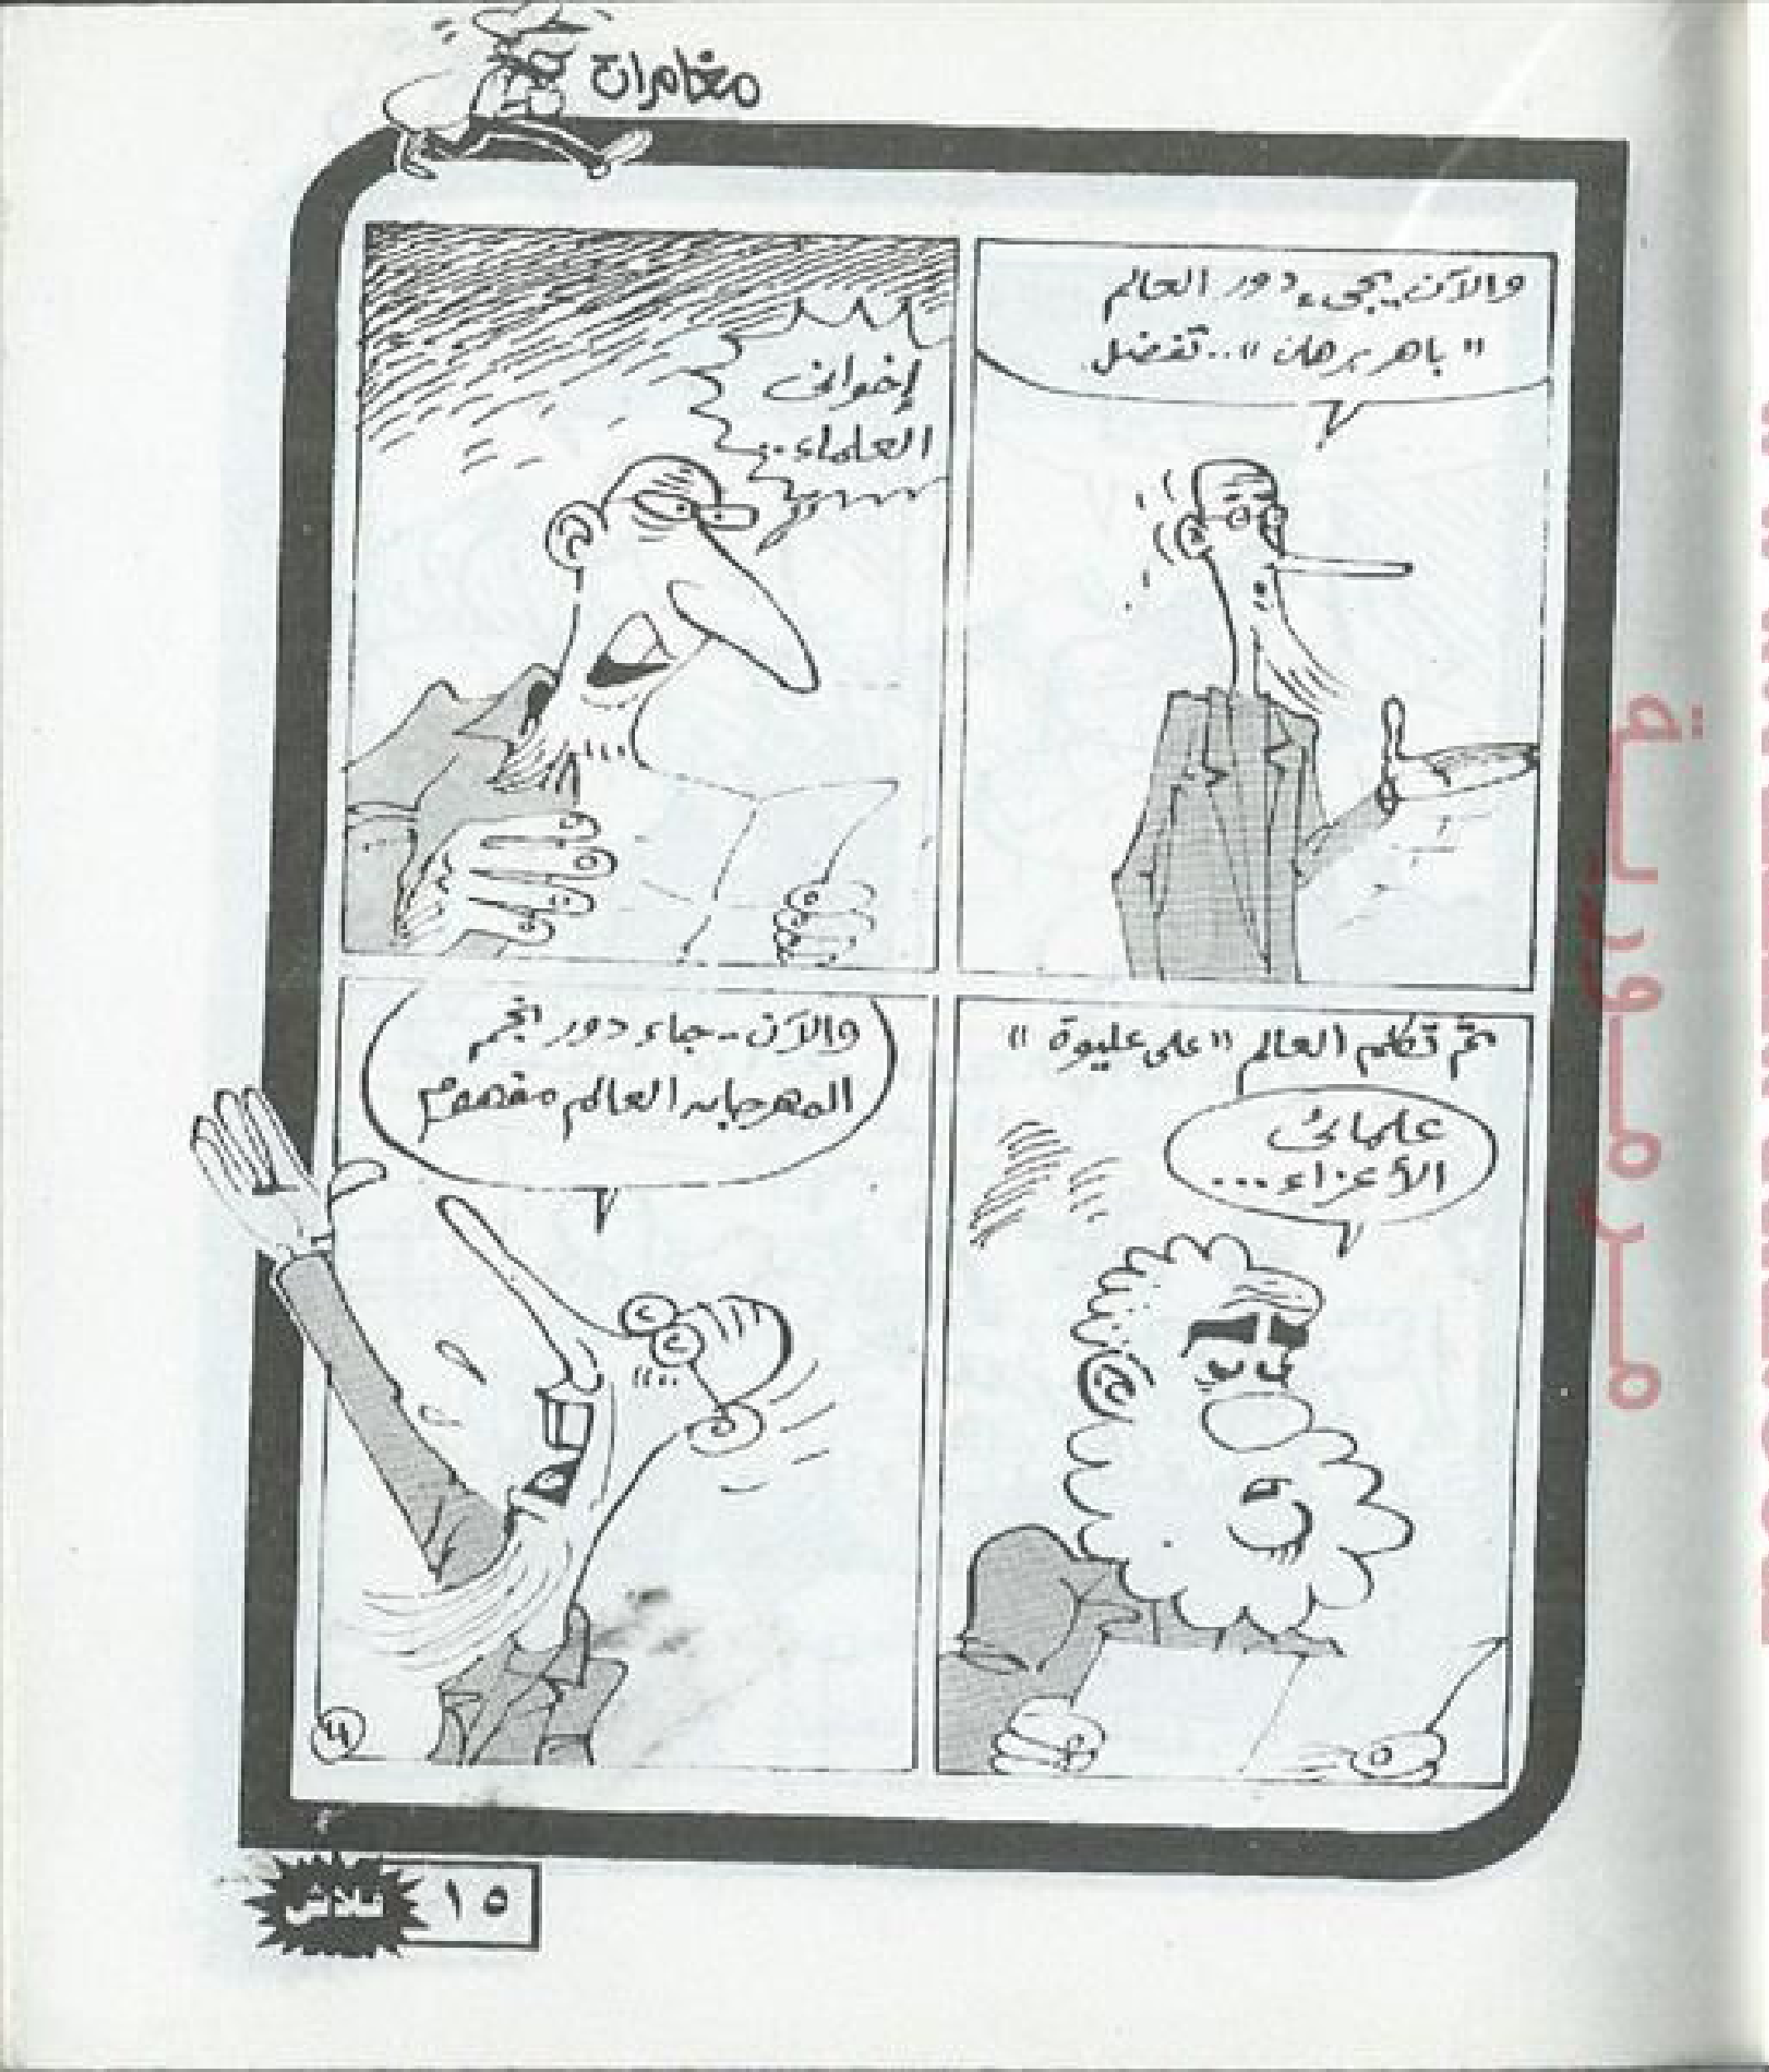 مغامرات
والآن.. يجيء دور العالم
"باهر برهان".. تفضل
إخوانى
العلماء..
ثم تكلم العالم "على عليوة"
علمائى
الأعزاء...
والآن - جاء دور نجم
المهرجان العالم مفهوم
٤
١٥
فلاش